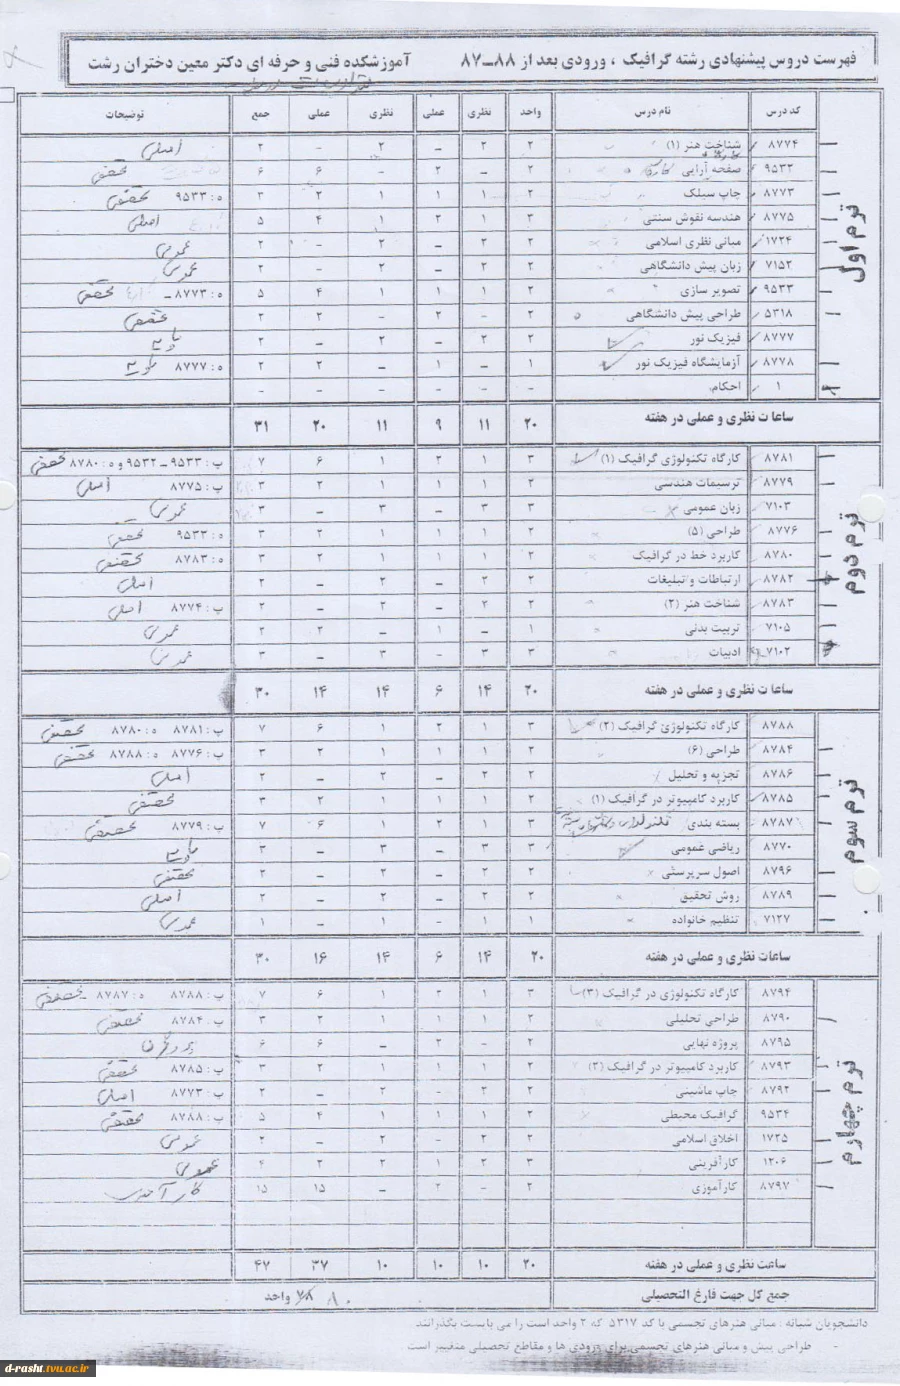 آموزشکده فنی و حرفه ای دکتر معین دختران رشت
فهرست دروس پیشنهادی رشته گرافیک ، ورودی بعد از ۸۸-۸۷
کد درس نام درس واحد نظری عملی نظری عملی جمع توضیحات
ترم اول
۸۷۷۴ شناخت هنر (۱) ۲ ۲ – ۲ – ۲ اصلی
۹۵۳۲ صفحه آرایی ۲ – ۲ – ۶ ۶
۸۷۷۳ چاپ سیلک ۲ ۱ ۱ ۱ ۲ ۳ ه : ۹۵۳۳
۸۷۷۵ هندسه نقوش سنتی ۳ ۱ ۲ ۱ ۴ ۵ اصلی
۱۷۲۴ مبانی نظری اسلامی ۲ ۲ – ۲ – ۲ عمومی
۷۱۵۲ زبان پیش دانشگاهی ۲ ۲ – ۲ – ۲ عمومی
۹۵۳۳ تصویر سازی ۲ ۱ ۱ ۱ ۴ ۵ ه : ۸۷۷۳
۵۳۱۸ طراحی پیش دانشگاهی ۲ – ۲ – ۲ ۲
۸۷۷۷ فیزیک نور ۲ ۲ – ۲ – ۲ پایه
۸۷۷۸ آزمایشگاه فیزیک نور ۱ – ۱ – ۲ ۲ ه : ۸۷۷۷ پایه
۱ احکام – – – – – –
ساعات نظری و عملی در هفته ۲۰ ۱۱ ۹ ۱۱ ۲۰ ۳۱
ترم دوم
۸۷۸۱ کارگاه تکنولوژی گرافیک (۱) ۳ ۱ ۲ ۱ ۶ ۷ پ : ۹۵۳۳ – ۹۵۳۲ و ه : ۸۷۸۰
۸۷۷۹ ترسیمات هندسی ۲ ۱ ۱ ۱ ۲ ۳ پ : ۸۷۷۵ اصلی
۷۱۰۳ زبان عمومی ۳ ۳ – ۳ – ۳ عمومی
۸۷۷۶ طراحی (۵) ۲ ۱ ۱ ۱ ۲ ۳ ه : ۹۵۳۲
۸۷۸۰ کاربرد خط در گرافیک ۲ ۱ ۱ ۱ ۲ ۳ ه : ۸۷۸۳
۸۷۸۲ ارتباطات و تبلیغات ۲ ۲ – ۲ – ۲ اصلی
۸۷۸۳ شناخت هنر (۲) ۲ ۲ – ۲ – ۲ پ : ۸۷۷۴ اصلی
۷۱۰۵ تربیت بدنی ۱ – ۱ – ۲ ۲ عمومی
۷۱۰۲ ادبیات ۳ ۳ – ۳ – ۳ عمومی
ساعات نظری و عملی در هفته ۲۰ ۱۴ ۶ ۱۴ ۱۴ ۳۰
ترم سوم
۸۷۸۸ کارگاه تکنولوژی گرافیک (۲) ۳ ۱ ۲ ۱ ۶ ۷ پ : ۸۷۸۱ ه : ۸۷۸۰
۸۷۸۴ طراحی (۶) ۲ ۱ ۱ ۱ ۲ ۳ پ : ۸۷۷۶ ه : ۸۷۸۸
۸۷۸۶ تجزیه و تحلیل ۲ ۲ – ۲ – ۲ اصلی
۸۷۸۵ کاربرد کامپیوتر در گرافیک (۱) ۲ ۱ ۱ ۱ ۲ ۳
۸۷۸۷ بسته بندی ۳ ۱ ۲ ۱ ۶ ۷ پ : ۸۷۷۹
۸۷۷۰ ریاضی عمومی ۳ ۳ – ۳ – ۳ پایه
۸۷۹۶ اصول سرپرستی ۲ ۲ – ۲ – ۲
۸۷۸۹ روش تحقیق ۲ ۲ – ۲ – ۲ اصلی
۷۱۲۷ تنظیم خانواده ۱ ۱ – ۱ – ۱ عمومی
ساعات نظری و عملی در هفته ۲۰ ۱۴ ۶ ۱۴ ۱۶ ۳۰
ترم چهارم
۸۷۹۴ کارگاه تکنولوژی در گرافیک (۳) ۳ ۱ ۲ ۱ ۶ ۷ پ : ۸۷۸۸ ه : ۸۷۸۷
۸۷۹۰ طراحی تحلیلی ۲ ۱ ۱ ۱ ۲ ۳ پ : ۸۷۸۴
۸۷۹۵ پروژه نهایی ۲ – ۲ – ۶ ۶
۸۷۹۳ کاربرد کامپیوتر در گرافیک (۲) ۲ ۱ ۱ ۱ ۲ ۳ پ : ۸۷۸۵
۸۷۹۲ چاپ ماشینی ۲ ۲ – ۲ – ۲ پ : ۸۷۷۳ اصلی
۹۵۳۴ گرافیک محیطی ۲ ۱ ۱ ۱ ۴ ۵ پ : ۸۷۸۸
۱۷۲۵ اخلاق اسلامی ۲ ۲ – ۲ – ۲ عمومی
۱۲۰۶ کارآفرینی ۳ ۲ ۱ ۲ ۲ ۴ عمومی
۸۷۹۷ کارآموزی ۲ – ۲ – ۱۵ ۱۵ کارآموزی
ساعت نظری و عملی در هفته ۲۰ ۱۰ ۱۰ ۱۰ ۳۷ ۴۷
جمع کل جهت فارغ التحصیلی ۸۰ واحد
دانشجویان شبانه : مبانی هنرهای تجسمی با کد ۵۳۱۷ که ۲ واحد است را می بایست بگذرانند
- طراحی پیش و مبانی هنرهای تجسمی برای ورودی ها و مقاطع تحصیلی متغییر است
d-rasht.tvu.ac.ir